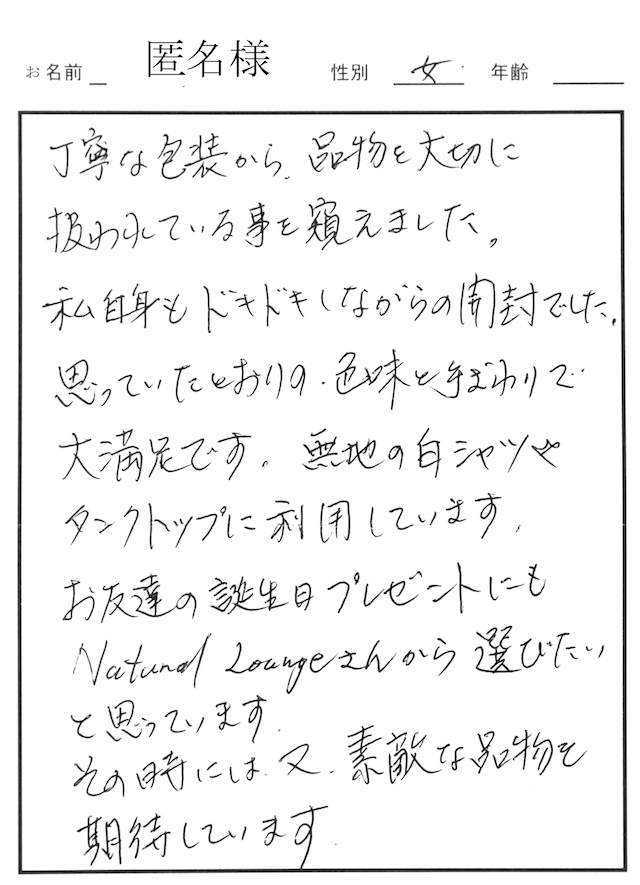 お名前 匿名様 性別 女 年齢
丁寧な包装から、品物を大切に
扱われている事を窺えました。
私自身もドキドキしながらの開封でした。
思っていたとおりの、色味と手ざわりで
大満足です。無地の白シャツや
タンクトップに利用しています。
お友達の誕生日プレゼントにも
Natural Loungeさんから選びたい
と思っています。
その時には、又、素敵な品物を
期待しています